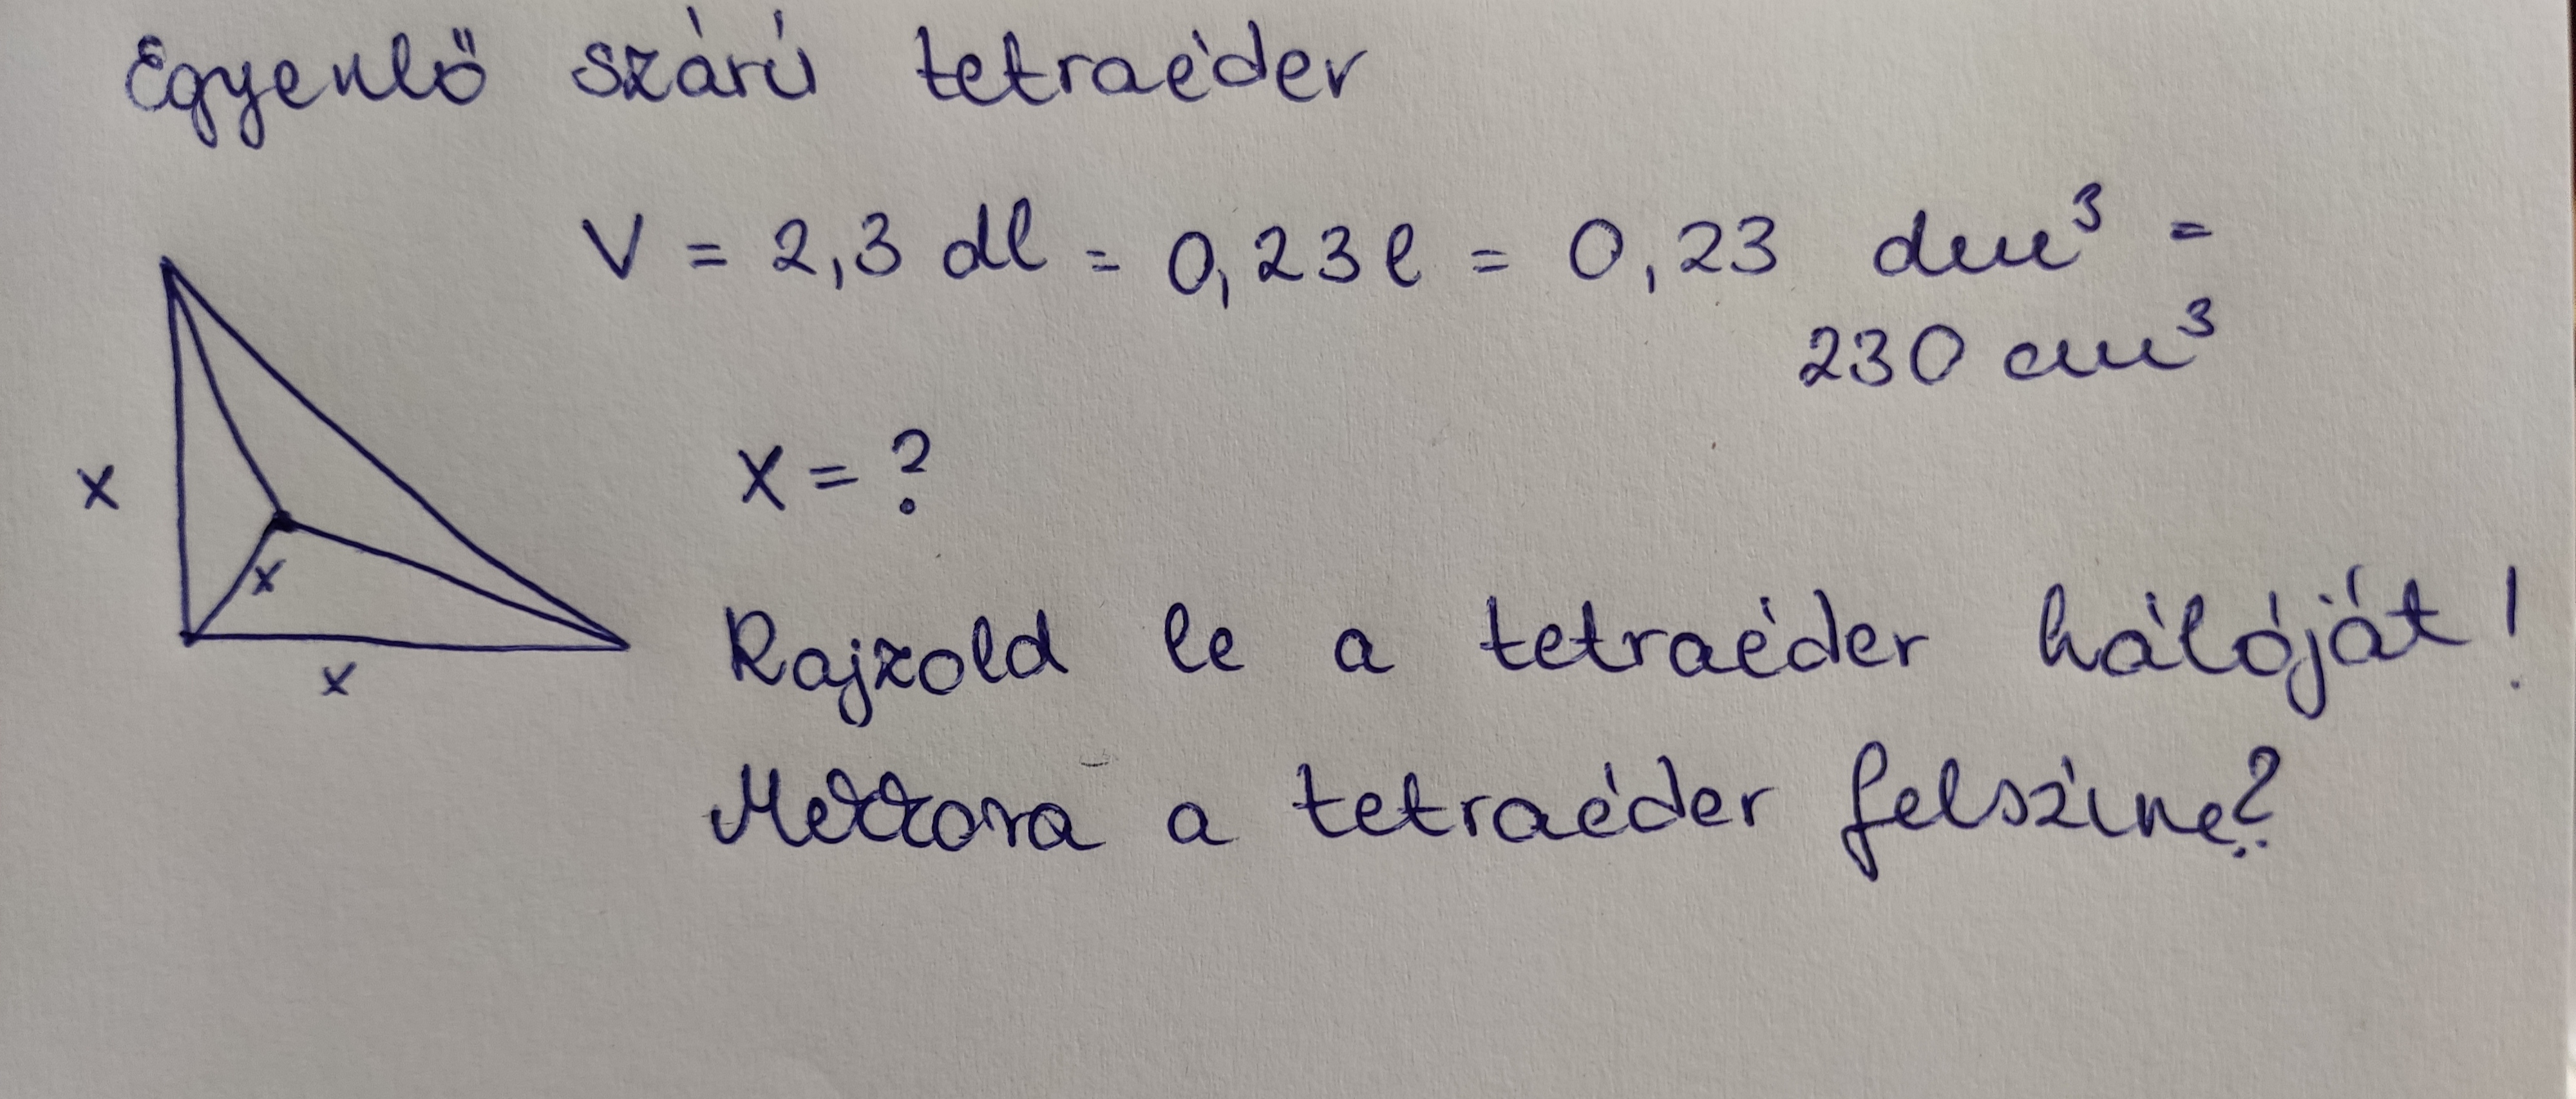 Egyenlő szárú tetraéder
V = 2,3 dl = 0,23 l = 0,23 dm³ =
230 cm³
x
x = ?
x
x
Rajzold le a tetraéder hálóját!
Mekkora a tetraéder felszíne?